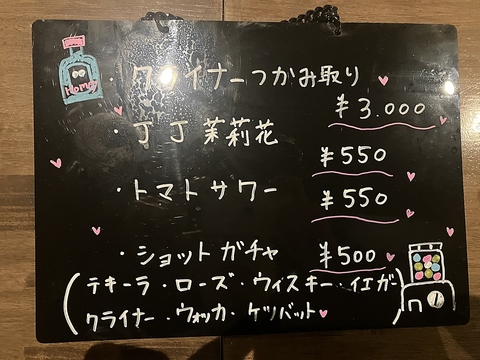 ・クライナーつかみ取り
¥3.000
・丁丁茉莉花
¥550
・トマトサワー
¥550
・ショットガチャ
¥500
(テキーラ・ローズ・ウィスキー・イエガー
クライナー・ウォッカ・ケツバット)